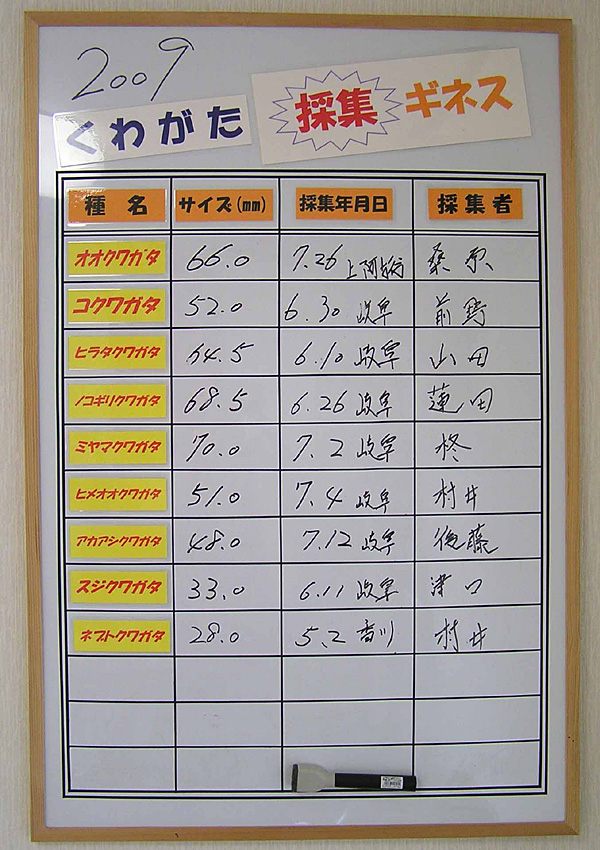 2009
くわがた 採集 ギネス
種名 サイズ(mm) 採集年月日 採集者
オオクワガタ 66.0 7.26 桑原
コクワガタ 52.0 6.30 岐阜 前野
ヒラタクワガタ 64.5 6.10 岐阜 山田
ノコギリクワガタ 68.5 6.26 岐阜 蓮田
ミヤマクワガタ 70.0 7.2 岐阜 柊
ヒメオオクワガタ 51.0 7.4 岐阜 村井
アカアシクワガタ 48.0 7.12 岐阜 後藤
スジクワガタ 33.0 6.11 岐阜 津口
ネブトクワガタ 28.0 5.2 香川 村井